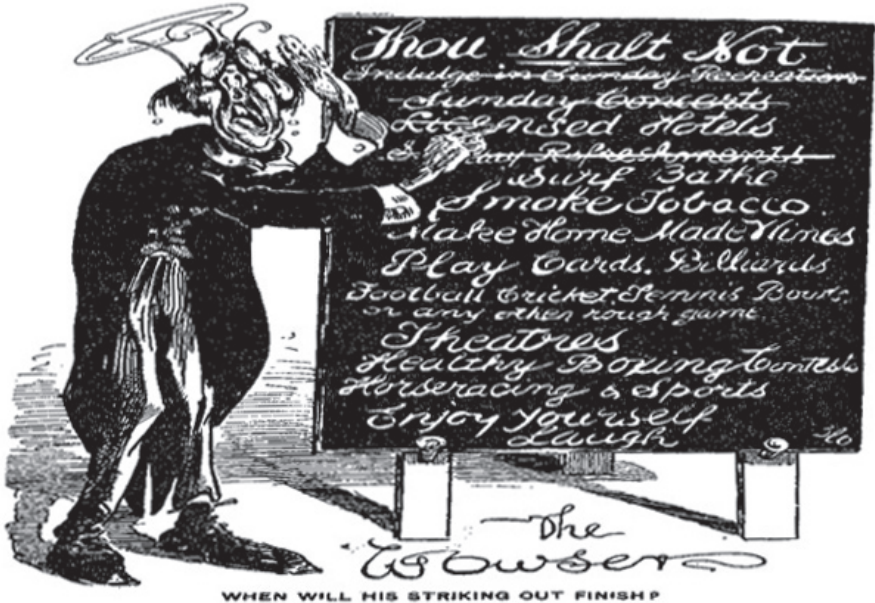 Thou Shalt Not
Indulge in Sunday Recreation
Sunday Concerts
Licensed Hotels
Refreshments
Surf Bathe
Smoke Tobacco
Make Home Made Wines
Play Cards. Billiards
Football Cricket. Tennis Bowls
or any other rough game
Theatres
Healthy Boxing Contests
Horseracing & Sports
Enjoy Yourself
Laugh
The
Wowser
WHEN WILL HIS STRIKING OUT FINISH?